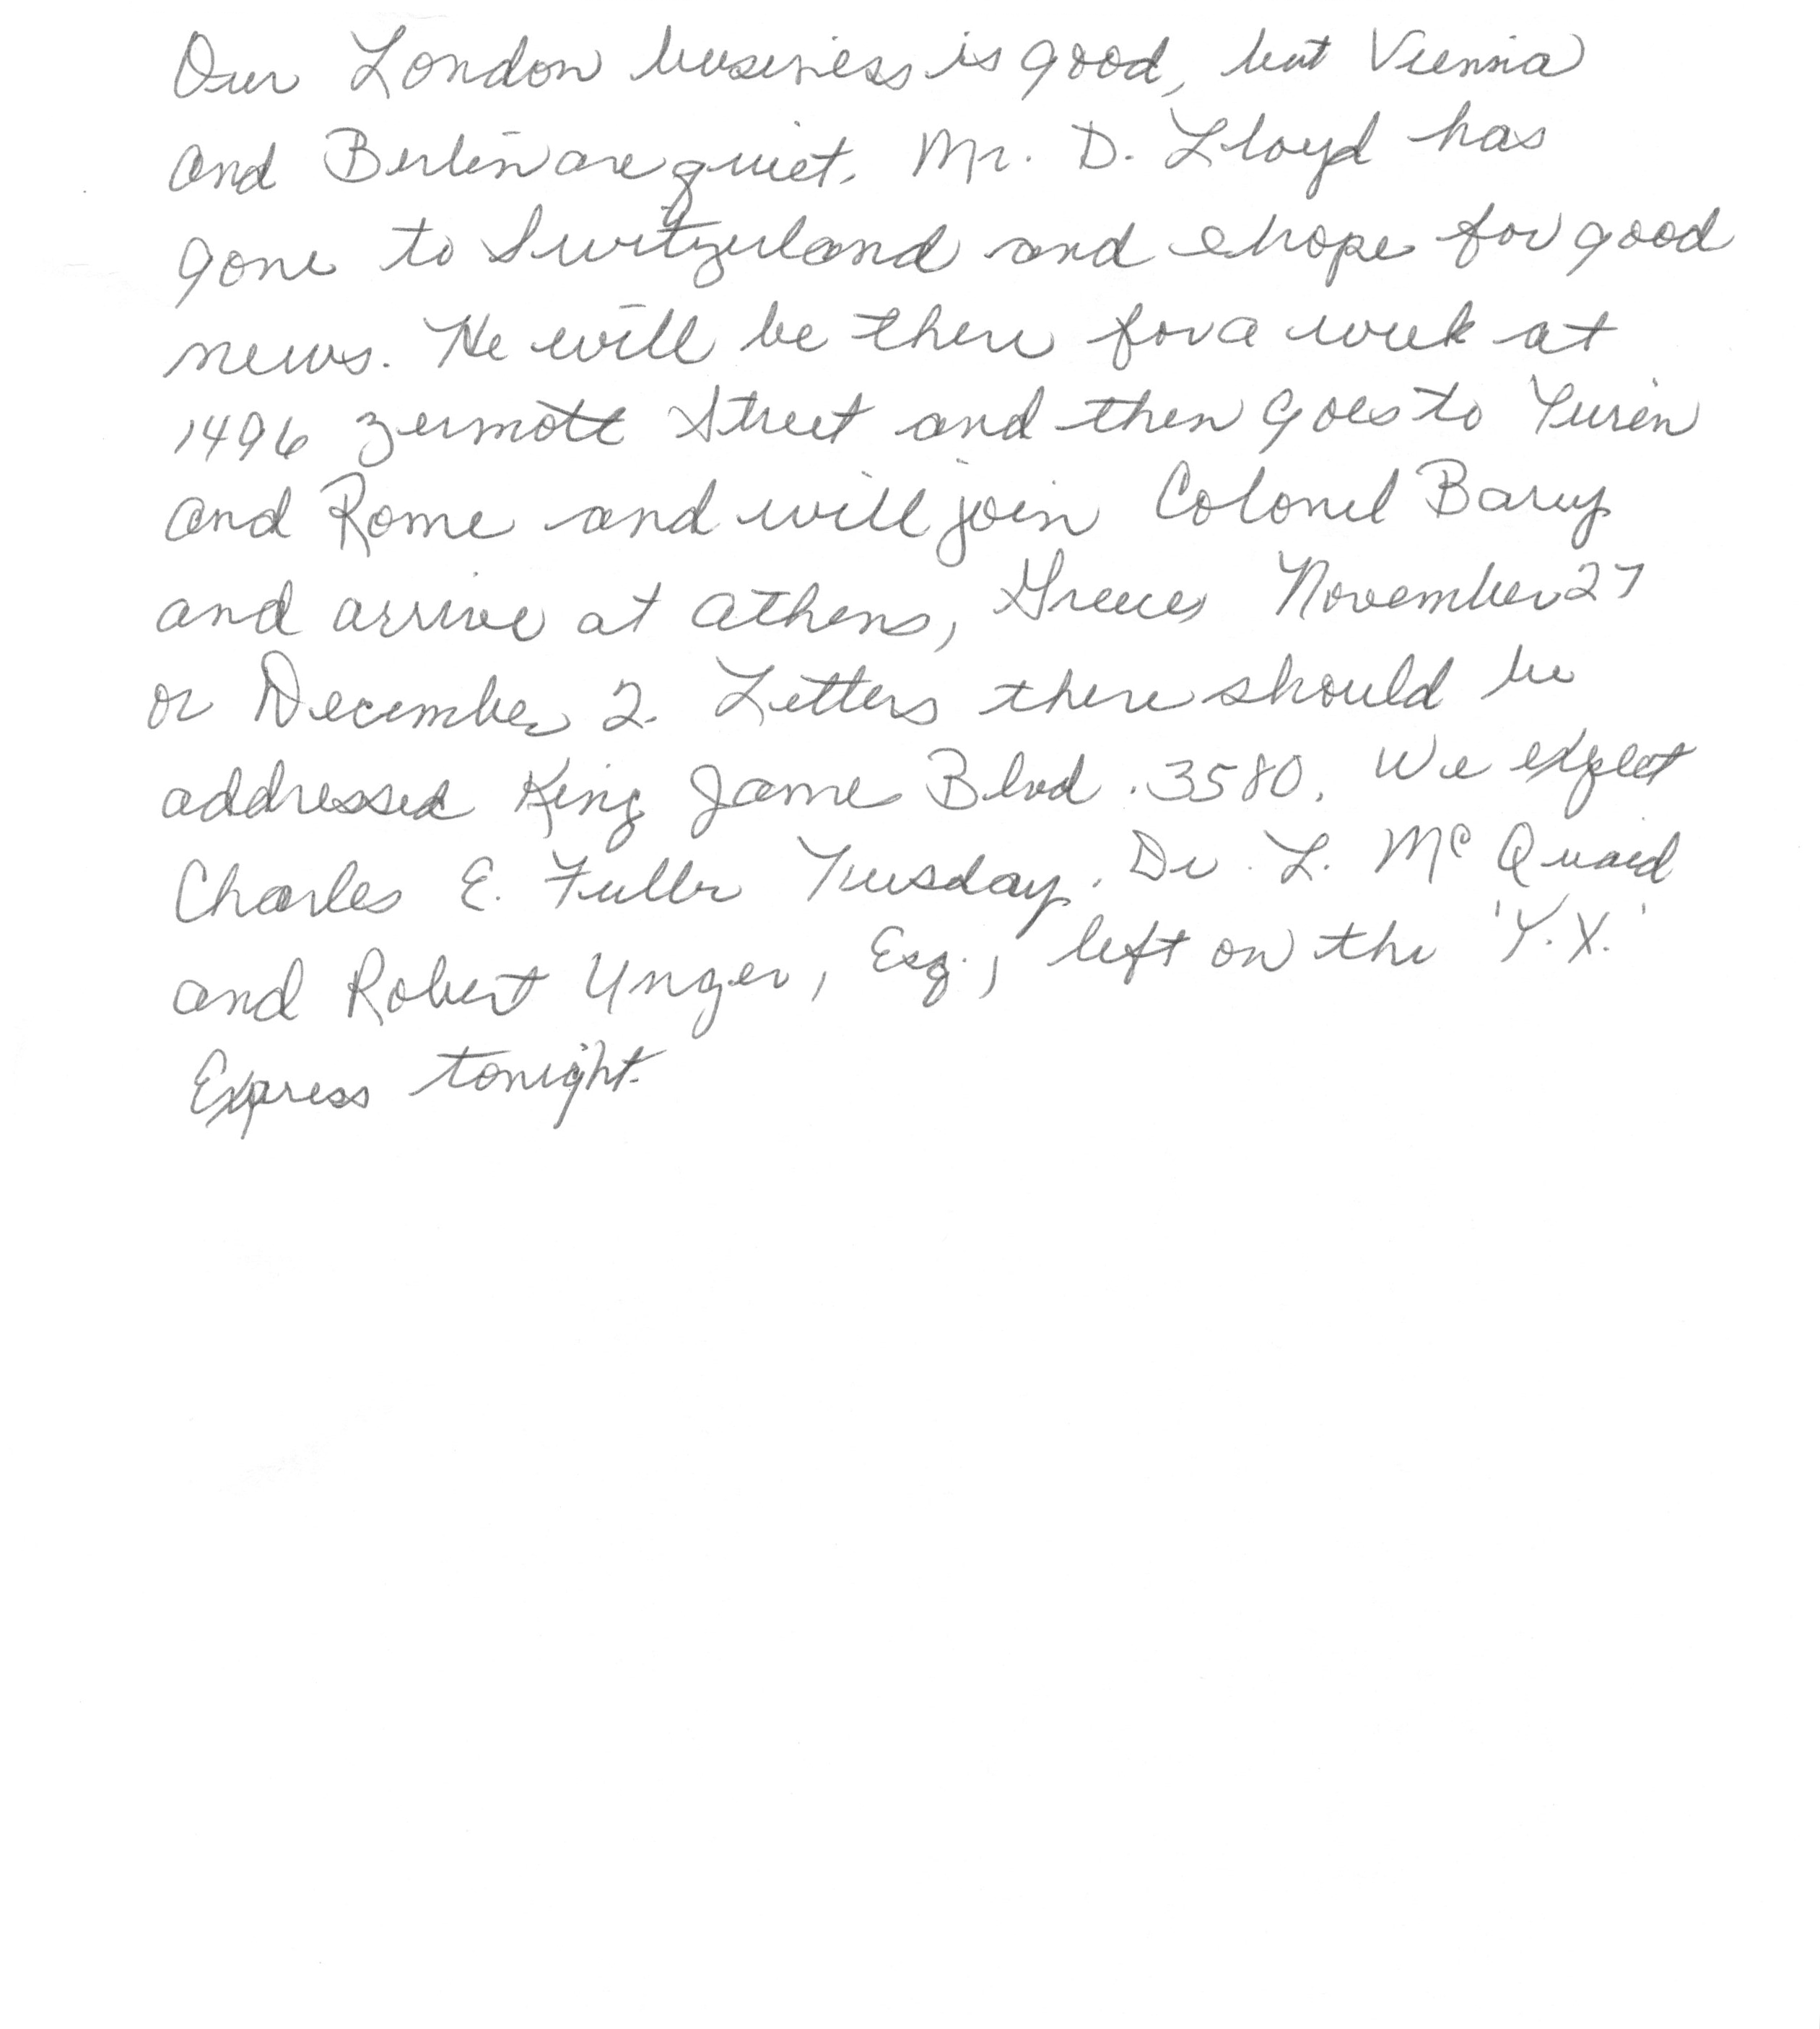 Our London business is good, but Vienna
and Berlin are quiet. Mr. D. Lloyd has
gone to Switzerland and I hope for good
news. He will be there for a week at
1496 Zermott Street and then goes to Turin
and Rome and will join Colonel Barry
and arrive at Athens, Greece November 27
or December 2. Letters there should be
addressed King James Blvd. 3580. We expect
Charles E. Fuller Tuesday. Dr. L. McQuaid
and Robert Unger, Esq., left on the 'Y.X.'
Express tonight.